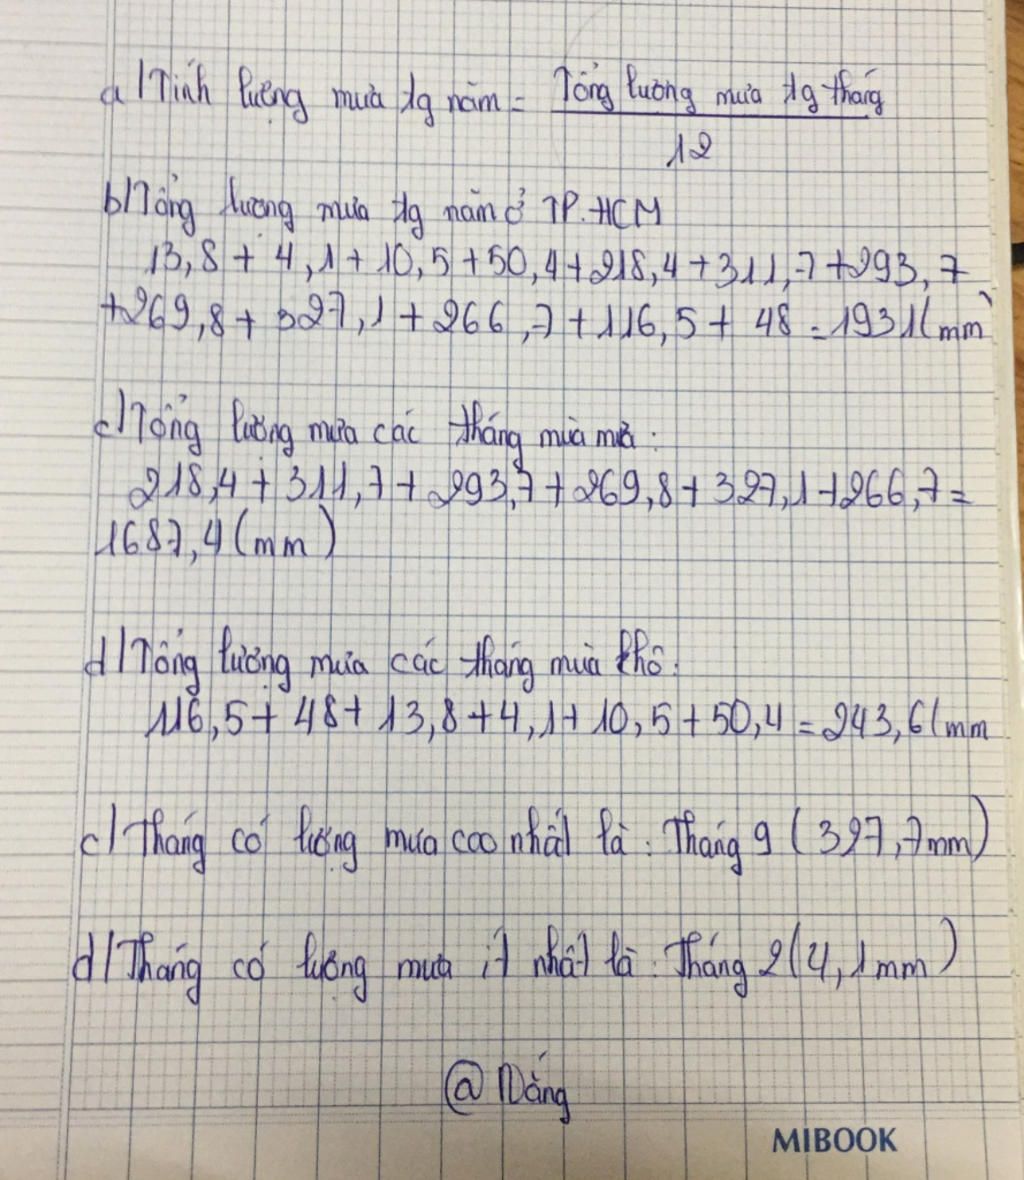 a/ Tính lượng mưa tg năm = Tổng lượng mưa tg tháng
12
b/ Tổng lượng mưa tg năm ở TP.HCM
13,8 + 4,1 + 10,5 + 50,4 + 218,4 + 311,7 + 293,7
+ 269,8 + 327,1 + 266,7 + 116,5 + 48 = 1931 (mm)
c/ Tổng lượng mưa các tháng mùa mưa :
218,4 + 311,7 + 293,7 + 269,8 + 327,1 + 266,7 =
1687,4 (mm)
d/ Tổng lượng mưa các tháng mùa khô :
116,5 + 48 + 13,8 + 4,1 + 10,5 + 50,4 = 243,6 (mm
c/ Tháng có lượng mưa cao nhất là : Tháng 9 (327,7mm)
d/ Tháng có lượng mưa ít nhất là : Tháng 2 (4,1mm)
@ Nắng
MIBOOK